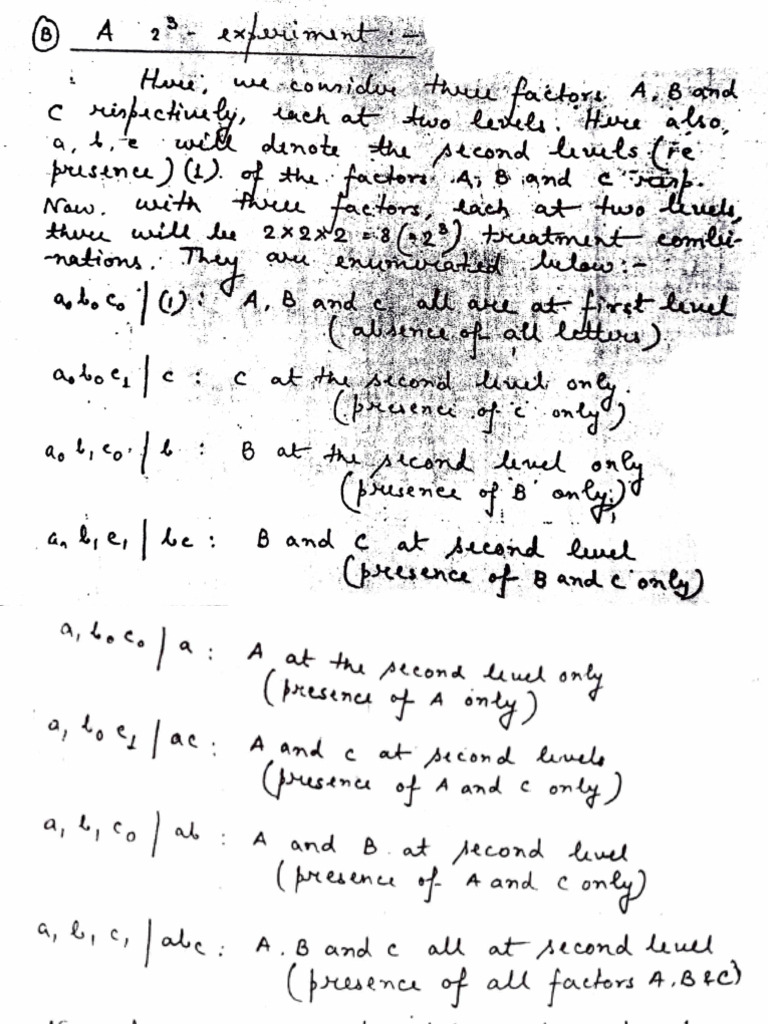 (B) A 2³ - experiment :-
Here, we consider three factors A, B and
C respectively, each at two levels. Here also,
a, b, c will denote the second levels (ie
presence) (1) of the factors A, B and C resp.
Now, with three factors, each at two levels,
there will be 2×2×2 = 8 (=2³) treatment combi-
nations. They are enumerated below:-
a₀b₀c₀ | (1) : A, B and C all are at first level
(absence of all letters)
a₀b₀c₁ | c : C at the second level only.
(presence of c only)
a₀b₁c₀ | b : B at the second level only
(presence of B only)
a₀b₁c₁ | bc : B and C at second level
(presence of B and C only)
a₁b₀c₀ | a : A at the second level only
(presence of A only)
a₁b₀c₁ | ac : A and C at second levels
(presence of A and C only)
a₁b₁c₀ | ab : A and B at second level
(presence of A and C only)
a₁b₁c₁ | abc : A. B and C all at second level
(presence of all factors A, B & C)